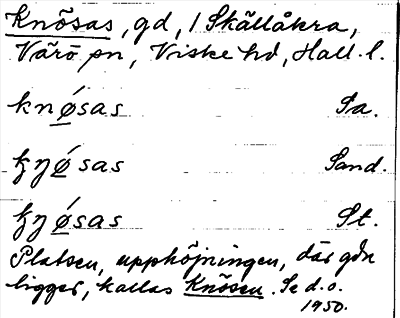 Knösas, gd, 1 Skällåkra,
Värö sn, Viske hd, Hall. l.
knǿsas Sa.
ȶȵǿsas Sand.
ȶȵǿsas St.
Platsen, upphöjningen, där gdn
ligger, kallas Knösen. Se d.o.
1950.